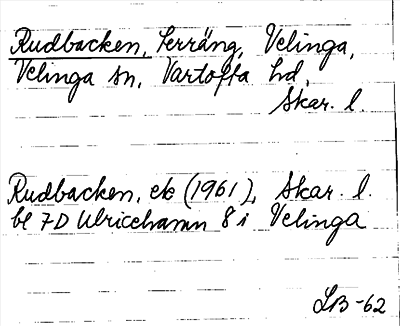 Rudbacken, terräng, Velinga,
Velinga sn, Vartofta hd,
Skar. l.
Rudbacken, ek (1961), Skar. l.
bl 7D Ulricehamn 8 i Velinga
LB-62